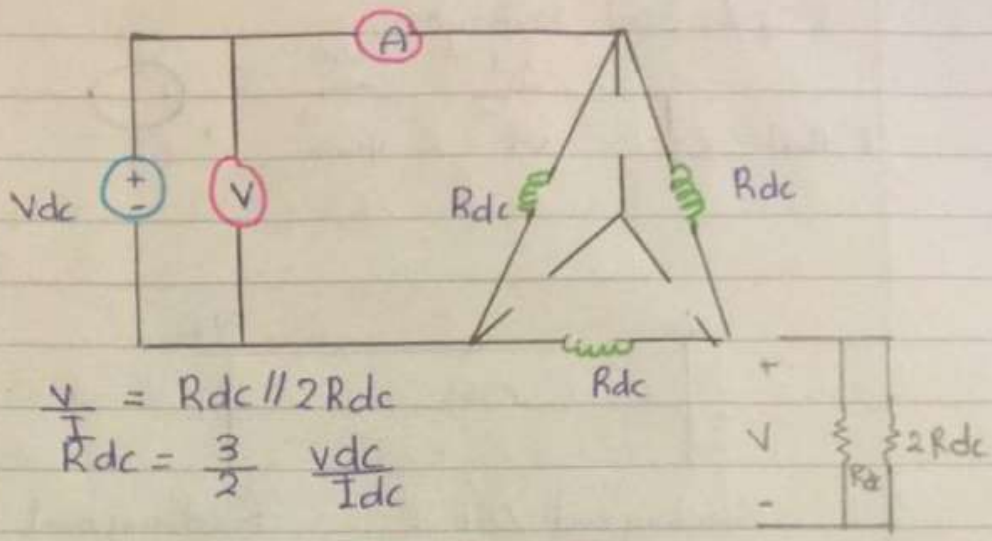 A
+
-
Vdc
V
Rdc
Rdc
Rdc
V/I = Rdc // 2Rdc
Rdc = 3/2 vdc/Idc
+
V
-
Rdc
2Rdc